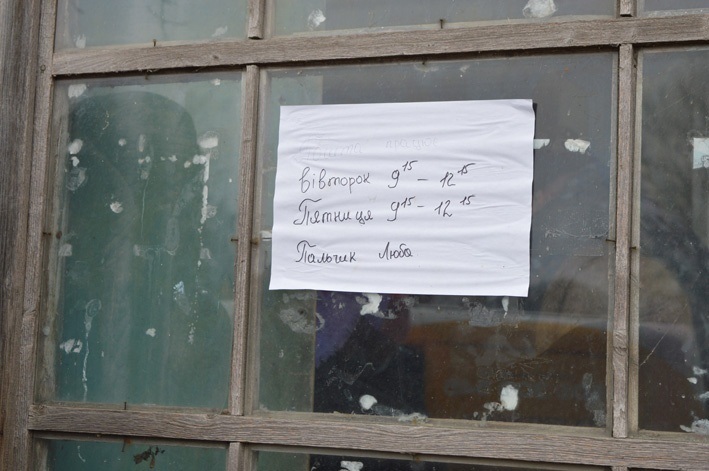 вівторок 9¹⁵ – 12¹⁵
П'ятниця 9¹⁵ – 12¹⁵
Пальчик Люба